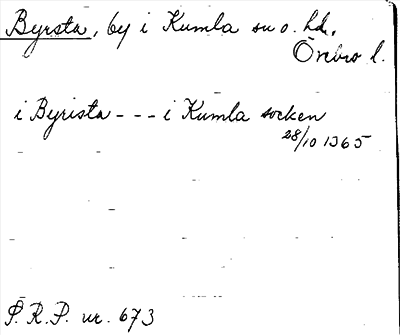 Byrsta, by i Kumla sn o. hd,
Örebro l.
i Byrista --- i Kumla socken
28/10 1365
P. R. P. nr. 673